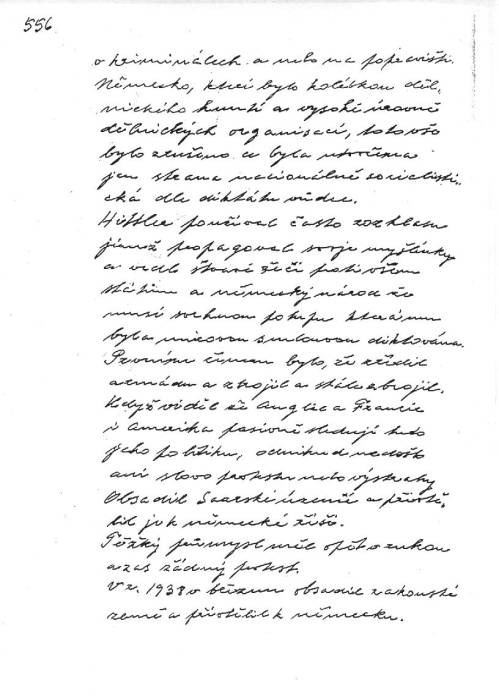 556
v kriminálech a nebo na popravišti.
Německo, která bylo kolébkou děl-
nického hnutí a vysoké úrovně
dělnických organisací, toto vše
bylo zrušeno a byla utvořena
jen strana nacionálně socialisti-
cká dle diktátu vůdce.
Hittler používal často rozhlasu
jímž propagoval svoje myšlenky
a vedl štvavé řeči proti všem
státům a německý národ že
musí sechnou potupu která mu
byla mírovou smlouvou diktována.
Prvním činem bylo, že zřídil
armádu a zbrojil a stále zbrojil.
Když viděl že Anglie a Francie
i Amerika pasivně sledují tuto
jeho politiku, odnikud nedošlo
ani slovo protestu nebo výstrahy
Obsadil Saarské území a přivtě-
lil jej k německé říši.
Těžký průmysl měl opět v rukou
a zas žádný protest.
V r. 1938 v březnu obsadil rakouské
země a přivtělil k německu.